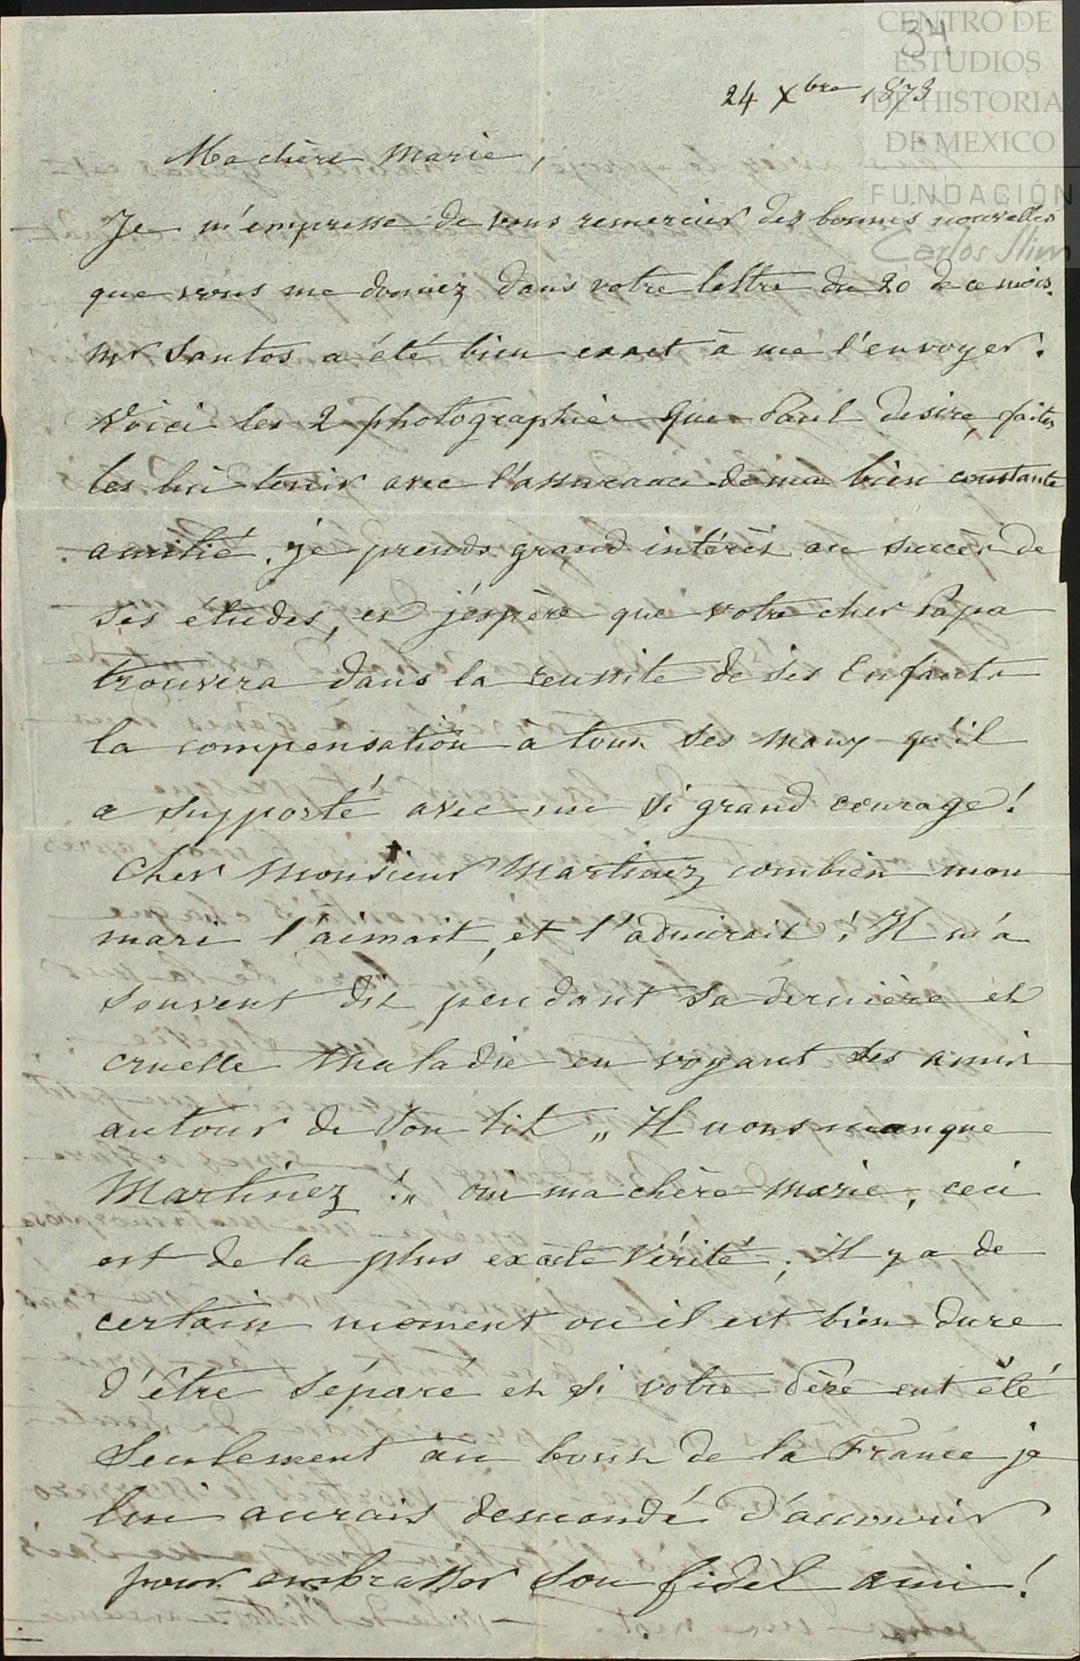 CENTRO DE
ESTUDIOS
DE HISTORIA
DE MEXICO
FUNDACIÓN
Carlos Slim
34
24 Xbre 1873
Ma chère Marie,
Je m'empresse de vous remercier des bonnes nouvelles
que vous me donniez dans votre lettre du 20 de ce mois.
Mr Santos a été bien exact à me l'envoyer.
Voici les 2 photographies que Paul desire, faites
les lui tenir avec l'assurance de ma bien constante
amitié. je prends grand intérès au succès de
ses études, et j'éspère que votre cher Papa
trouvera dans la reussite de ses Enfants
la compensation a tous ses maux qu'il
a supporté avec un si grand courage!
Cher Monsieur Martinez combien mon
mari l'aimait, et l'admirait! Il m'a
souvent dit pendant sa dernière et
cruelle maladie en voyant ses amis
autour de son lit „ Il nous manque
Martinez !„ oui ma chère Marie, ceci
est de la plus exacte vérité; Il y a de
certain moment ou il est bien dure
d'être séparé et si votre Père eut été
seulement au bout de la France je
lui aurais demandé d'accourir
pour embrasser son fidèl ami!